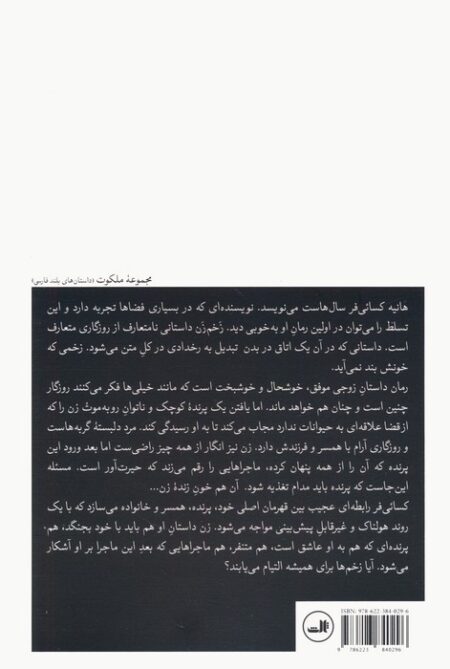 مجموعهٔ ملکوت (داستان‌های بلند فارسی)
هانیه کسائی‌فر سال‌هاست می‌نویسد. نویسنده‌ای که در بسیاری فضاها تجربه دارد و این
تسلط را می‌توان در اولین رمانِ او به‌خوبی دید. زَخم‌زَن داستانی نامتعارف از روزگاری متعارف
است. داستانی که در آن یک اتاق در بدن تبدیل به رخدادی در کلِ متن می‌شود. زخمی که
خونش بند نمی‌آید.
رمان داستانِ زوجی موفق، خوشحال و خوشبخت است که مانند خیلی‌ها فکر می‌کنند روزگار
چنین است و چنان هم خواهد ماند. اما یافتن یک پرندهٔ کوچک و ناتوانِ روبه‌موت زن را که
از قضا علاقه‌ای به حیوانات ندارد مجاب می‌کند تا به او رسیدگی کند. مرد دلبستهٔ گربه‌هاست
و روزگاری آرام با همسر و فرزندش دارد. زن نیز انگار از همه چیز راضی‌ست اما بعد ورود این
پرنده که آن را از همه پنهان کرده، ماجراهایی را رقم می‌زند که حیرت‌آور است. مسئله
این‌جاست که پرنده باید مدام تغذیه شود. آن هم خونِ زندهٔ زن...
کسائی‌فر رابطه‌ای عجیب بین قهرمان اصلی خود، پرنده، همسر و خانواده می‌سازد که با یک
روند هولناک و غیرقابلِ پیش‌بینی مواجه می‌شود. زن داستانِ او هم باید با خود بجنگد، هم
پرنده‌ای که هم به او عاشق است، هم متنفر، هم ماجراهایی که بعدِ این ماجرا بر او آشکار
می‌شود. آیا زخم‌ها برای همیشه التیام می‌یابند؟
ISBN: 978-622-384-029-6
9 786223 840296
ثالث